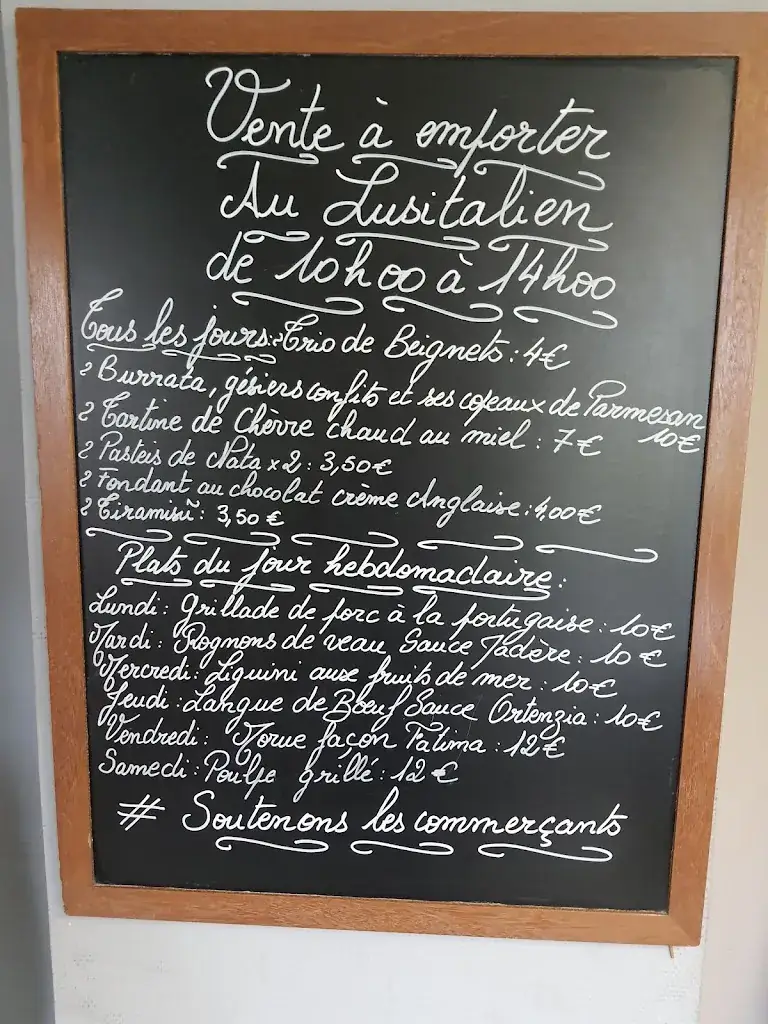 Vente à emporter
Au Lusitalien
de 10h00 à 14h00
Tous les jours: Trio de Beignets : 4€
Burrata, gésiers confits et ses copeaux de Parmesan
10€
Tartine de Chèvre chaud au miel : 7€
Pasteis de Nata x2 : 3,50€
Fondant au chocolat crème Anglaise : 4,00€
Tiramisù : 3,50€
Plats du jour hebdomadaire :
Lundi : Grillade de porc à la portugaise : 10€
Mardi : Rognons de veau Sauce Madère : 10€
Mercredi : Liguini aux fruits de mer : 10€
Jeudi : Langue de Bœuf Sauce Ortenzia : 10€
Vendredi : Morue façon Fatima : 12€
Samedi : Poulpe grillé : 12€
# Soutenons les commerçants